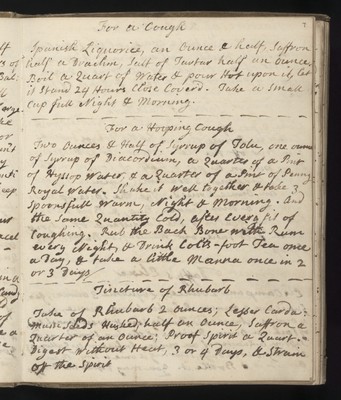 For a Cough
7
Spanish Liquorice, an Ounce & half, Saffron
half a Drachm, Salt of Tartar half an ounce,
Boil a Quart of Water & pour Hot upon it, let
it Stand 24 Hours Close Cover'd. Take a Small
Cup full Night & Morning.
For a Hooping Cough
Two Ounces & Half of Syrrup of Tolu, one ounce
of Syrup of Diacordium, a Quarter of a Pint
of Hyssop Water, & a Quarter of a Pint of Penny-
Royal Water. Shake it Well together & take 3
Spoonsfull Warm, Night & Morning. And
the Same Quantity Cold, after every fit of
Coughing. Rub the Back Bone with Rum
every Night, & Drink Colts-foot Tea once
a Day, & take a little Manna once in 2
or 3 Days
Tincture of Rhubarb
Take of Rhubarb 2 ounces; Lesser Carda-
mum Seeds Husked, half an Ounce, Saffron a
Quarter of an Ounce; Proof Spirit a Quart.
Digest Without Heat, 3 or 4 Days, & Strain
off the Spirit